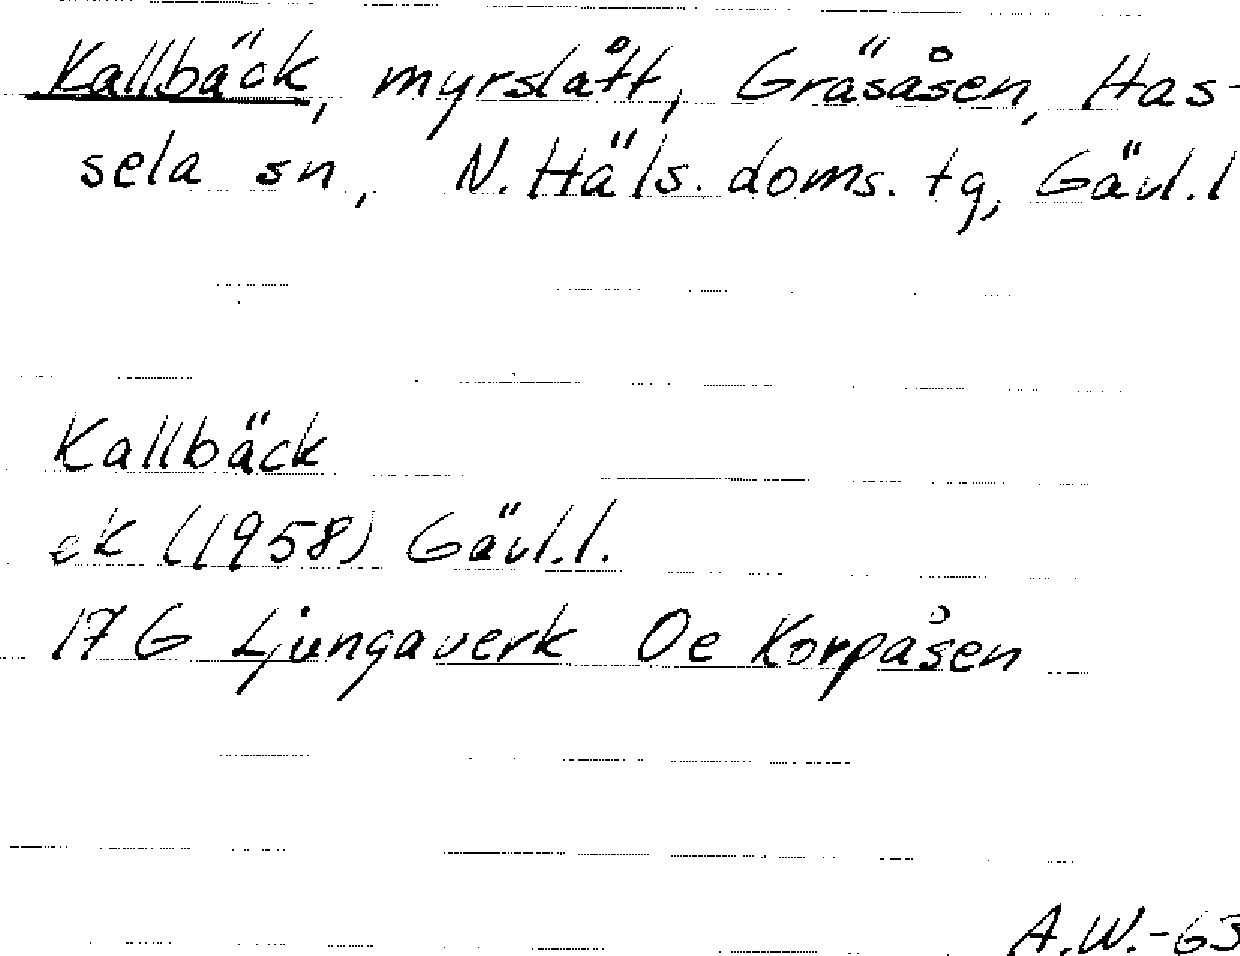 Kallbäck, myrslått, Gräsåsen, Has-
sela sn, N. Häls. doms. tg, Gävl.l
Kallbäck
ek (1958) Gävl.l.
17 G Ljungaverk Oe Korpåsen
A.W.-63